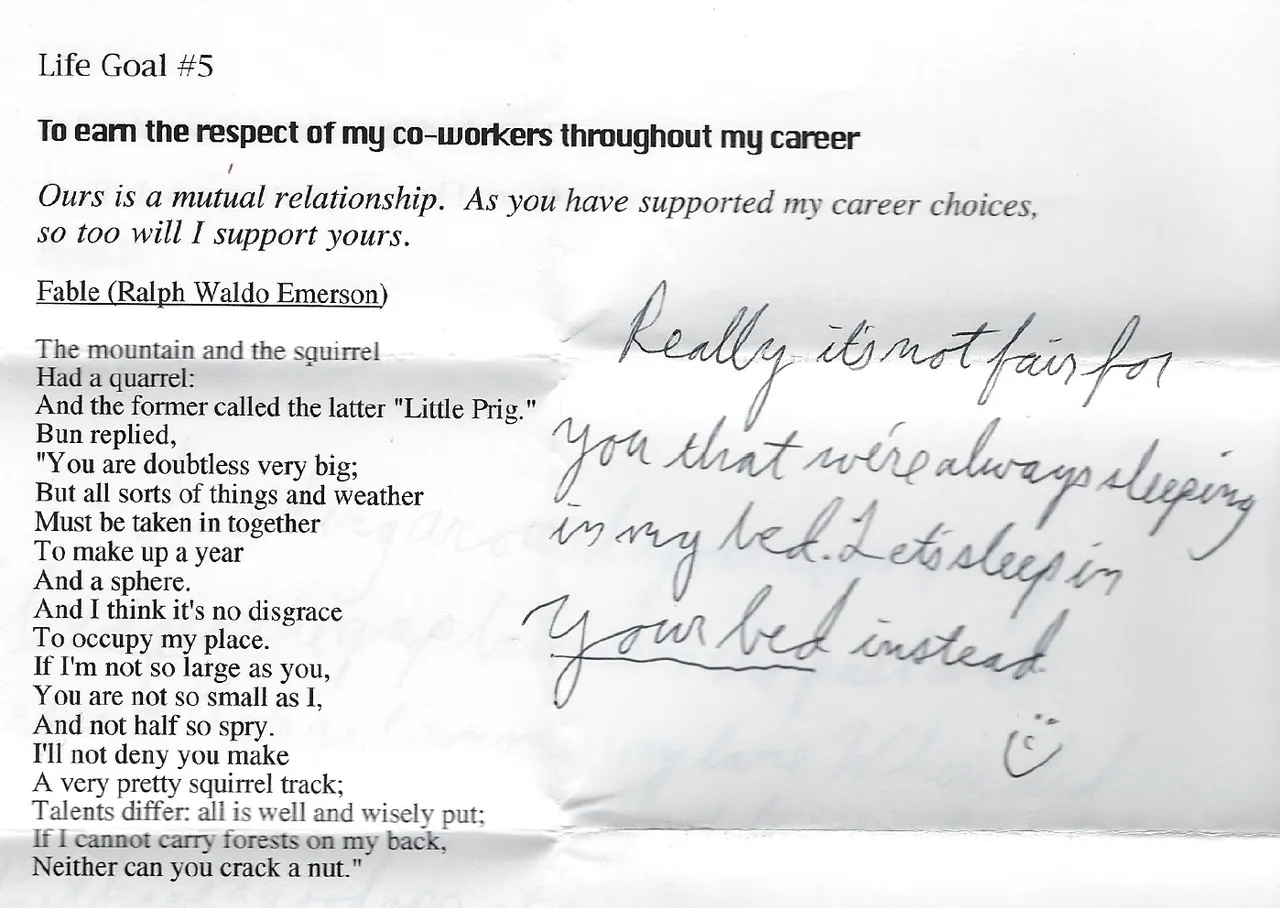 Life Goal #5
To earn the respect of my co-workers throughout my career
Ours is a mutual relationship.  As you have supported my career choices,
so too will I support yours.
Fable (Ralph Waldo Emerson)
The mountain and the squirrel
Had a quarrel:
And the former called the latter "Little Prig."
Bun replied,
"You are doubtless very big;
But all sorts of things and weather
Must be taken in together
To make up a year
And a sphere.
And I think it's no disgrace
To occupy my place.
If I'm not so large as you,
You are not so small as I,
And not half so spry.
I'll not deny you make
A very pretty squirrel track;
Talents differ: all is well and wisely put;
If I cannot carry forests on my back,
Neither can you crack a nut."
Really it's not fair for
you that we're always sleeping
in my bed. Let's sleep in
your bed instead